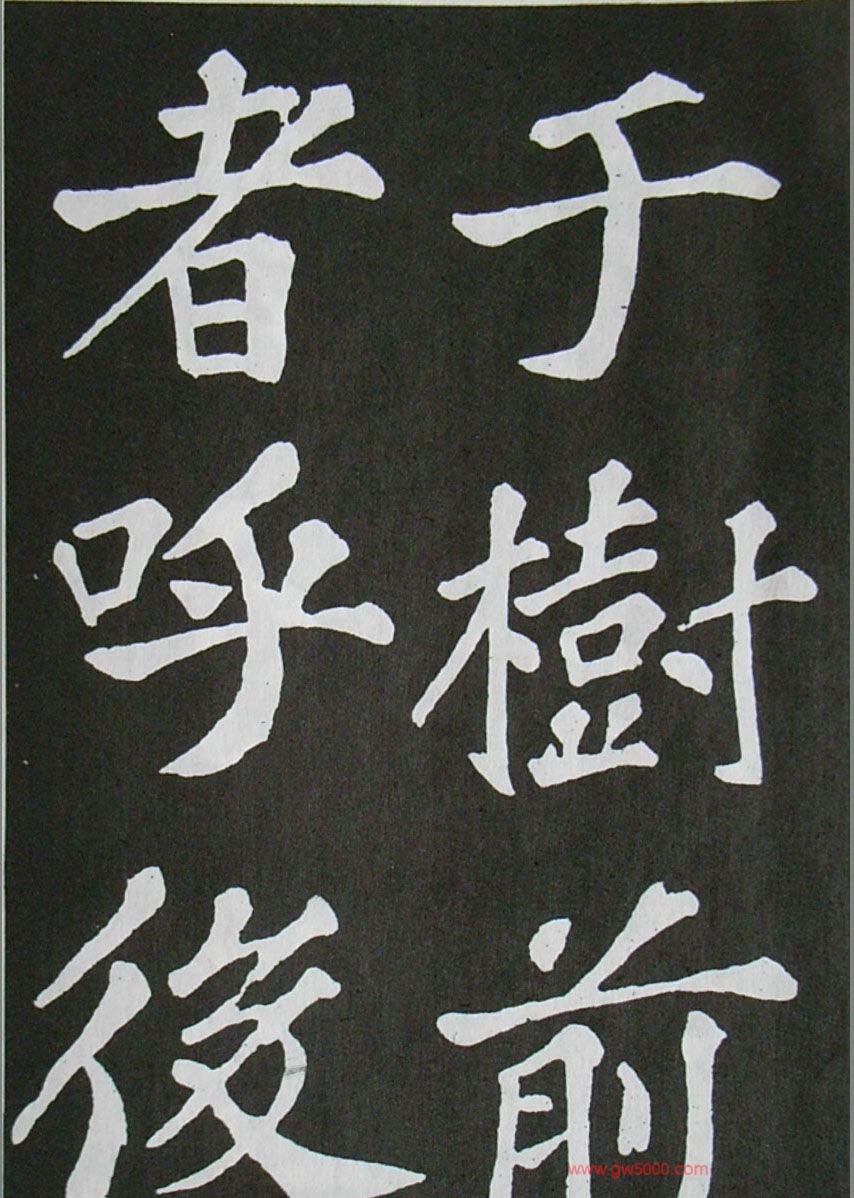 于樹前
者呼後
www.gw5000.com